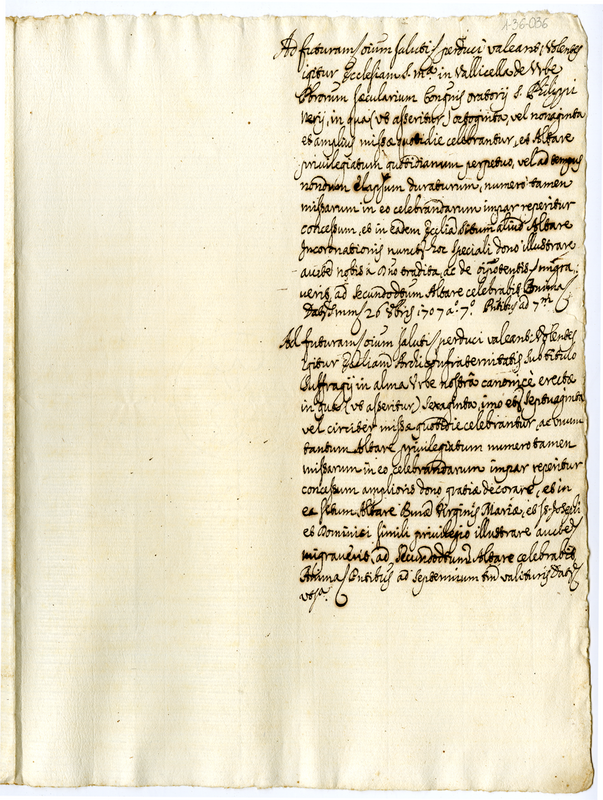 A-36-036
Ad futuram oium saluti perduci valeant; Volentes
igitur Ecclesiam S. Mæ in Vallicella de Urbe
Pbrorum sæcularium Congnis oratorij S. Philippi
Nerij, in qua (ut asseritur) octoginta, vel nonaginta
et amplius missæ quotidie celebrantur, et Altare
privilegiatum quotidianum perpetuo, vel ad tempus
nondum elapsum duraturum, numero tamen
missarum in eo celebrandarum impar reperitur
concessum, et in eadem Ecclia situm aliud Altare
Incoronationis nuncup. hoc speciali dono illustrare
aucte nobis a Dno tradita, ac de
veris, ad secundodtum Altare celebrabit Anima
26 1707 aº 7º Pntibus ad 7m
Ad futuram oium saluti perduci valeant; Volentes
igitur Eccliam Archiconfraternitatis sub titulo
Suffragij in alma Urbe nostra canonice erectæ
in qua (ut asseritur) sexaginta, imo et septuaginta
vel circiter missæ quotidie celebrantur, ac unum
tantum Altare privilegiatum numero tamen
missarum in eo celebrandarum impar reperitur
concessum amplioris dono gratiæ decorare, et in
ea situm Altare Virginis Mariæ, et SS. Josephi
et Dominici simili privilegio illustrare aucte
migraverit, ad secundodtum Altare celebrabit
Anima Pntibus ad septennium tm valituris Dat
ut sª.